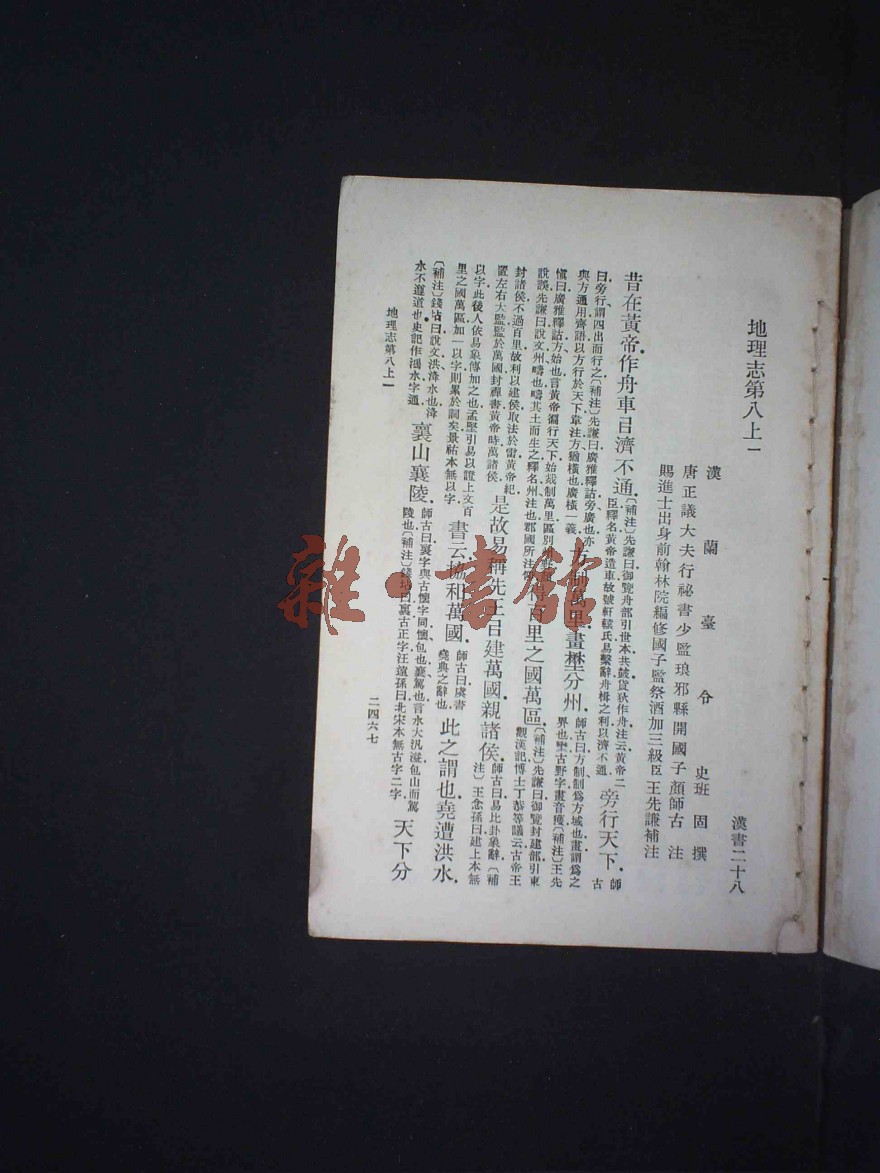 地理志第八上一
漢書二十八
漢蘭臺令史班固撰
唐正議大夫行祕書少監琅邪縣開國子顏師古注
賜進士出身前翰林院編修國子監祭酒加三級臣王先謙補注
昔在黃帝作舟車㠯濟不通〔補注〕先謙曰御覽舟部引世本共鼓貨狄作舟注云黃帝二臣釋名黃帝造車故號軒轅氏易繫辭舟楫之利以濟不通旁行天下師古
曰旁行謂四出而行之〔補注〕先謙曰廣雅釋詁旁廣也亦與方通用齊語以方行於天下韋注方猶橫也廣橫一義方制萬里畫壄分州師古曰方制制為方域也畫謂為之界也壄古野字畫音獲〔補注〕王先
慎曰廣雅釋詁方始也言黃帝徧行天下始裁制萬里區別
說誤先謙曰說文州疇也疇其土而生之釋名州注也郡國所注得百里之國萬區〔補注〕先謙曰御覽封建部引東觀漢記博士丁恭等議云古帝王
封諸侯不過百里故利以建侯取法於雷黃帝紀置左右大監監於萬國封禪書黃帝時萬諸侯是故易稱先王㠯建萬國親諸侯師古曰易比卦象辭〔補注〕王念孫曰建上本無
以字此後人依易象傳加之也孟堅引易以證上文百里之國萬區加一以字則累於詞矣景祐本無以字書云協和萬國師古曰虞書堯典之辭也此之謂也堯遭洪水
〔補注〕錢坫曰說文洪洚水也洚水不遵道也史記作鴻水字通褱山襄陵師古曰褱字與古懷字同懷包也襄駕也言水大汎溢包山而駕陵也〔補注〕錢坫曰褱古正字汪遠孫曰北宋本無古字二字天下分
地理志第八上一
二四六七
雜·書館